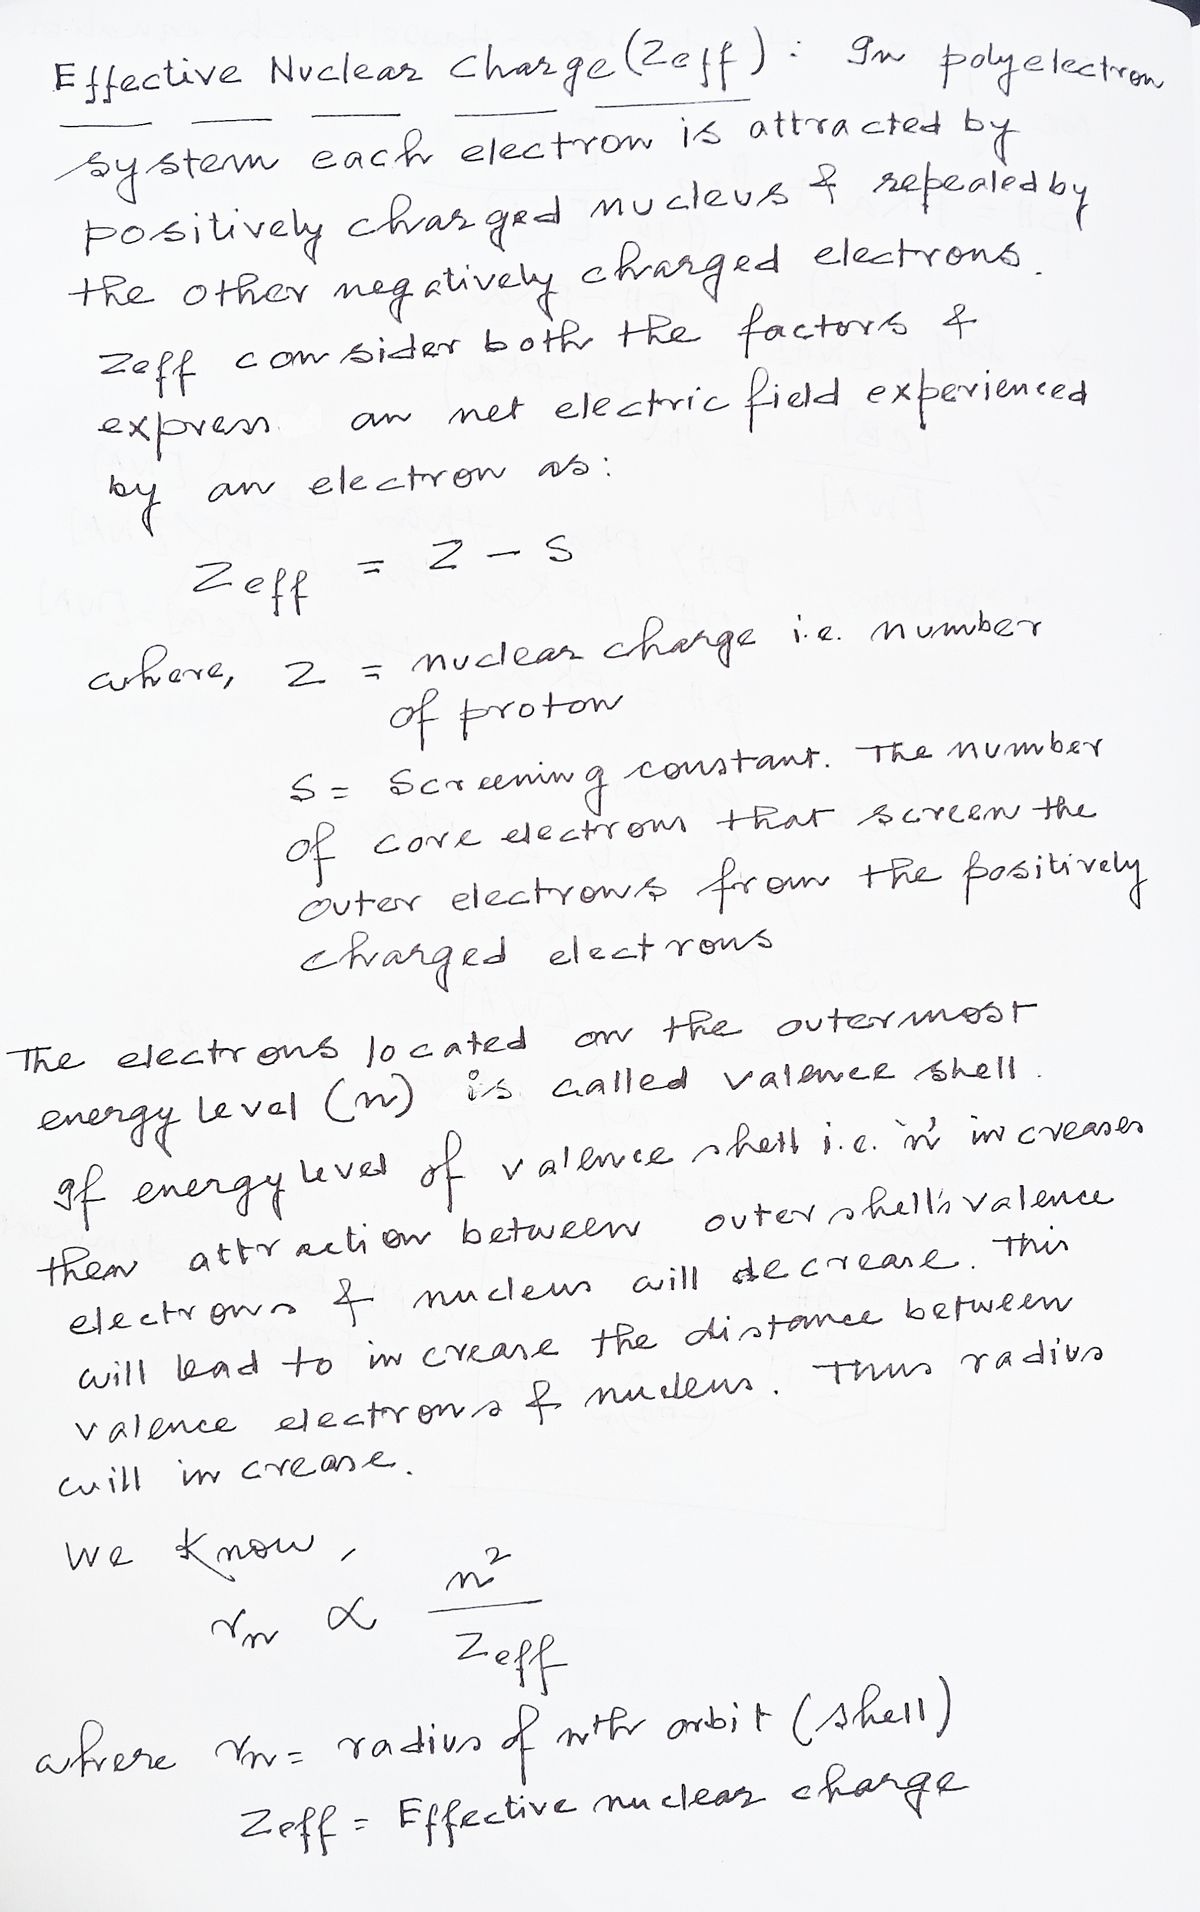 Effective Nuclear Charge (Zeff) : In polyelectron
system each electron is attracted by
positively charged nucleus & repealed by
the other negatively charged electrons.
Zeff consider both the factors &
express an net electric field experienced
by an electron as:
Zeff = Z - S
where, Z = nuclear charge i.e. number
of proton
S = Screening constant. The number
of core electrons that screen the
outer electrons from the positively
charged electrons
The electrons located on the outermost
energy level (n) is called valence shell.
If energy level of valence shell i.e. 'n' increases
then attraction between outer shell's valence
electrons & nucleus will decrease. This
will lead to increase the distance between
valence electrons & nucleus. Thus radius
will increase.
We know,
rn ∝ n²
Zeff
where rn = radius of nth orbit (shell)
Zeff = Effective nuclear charge